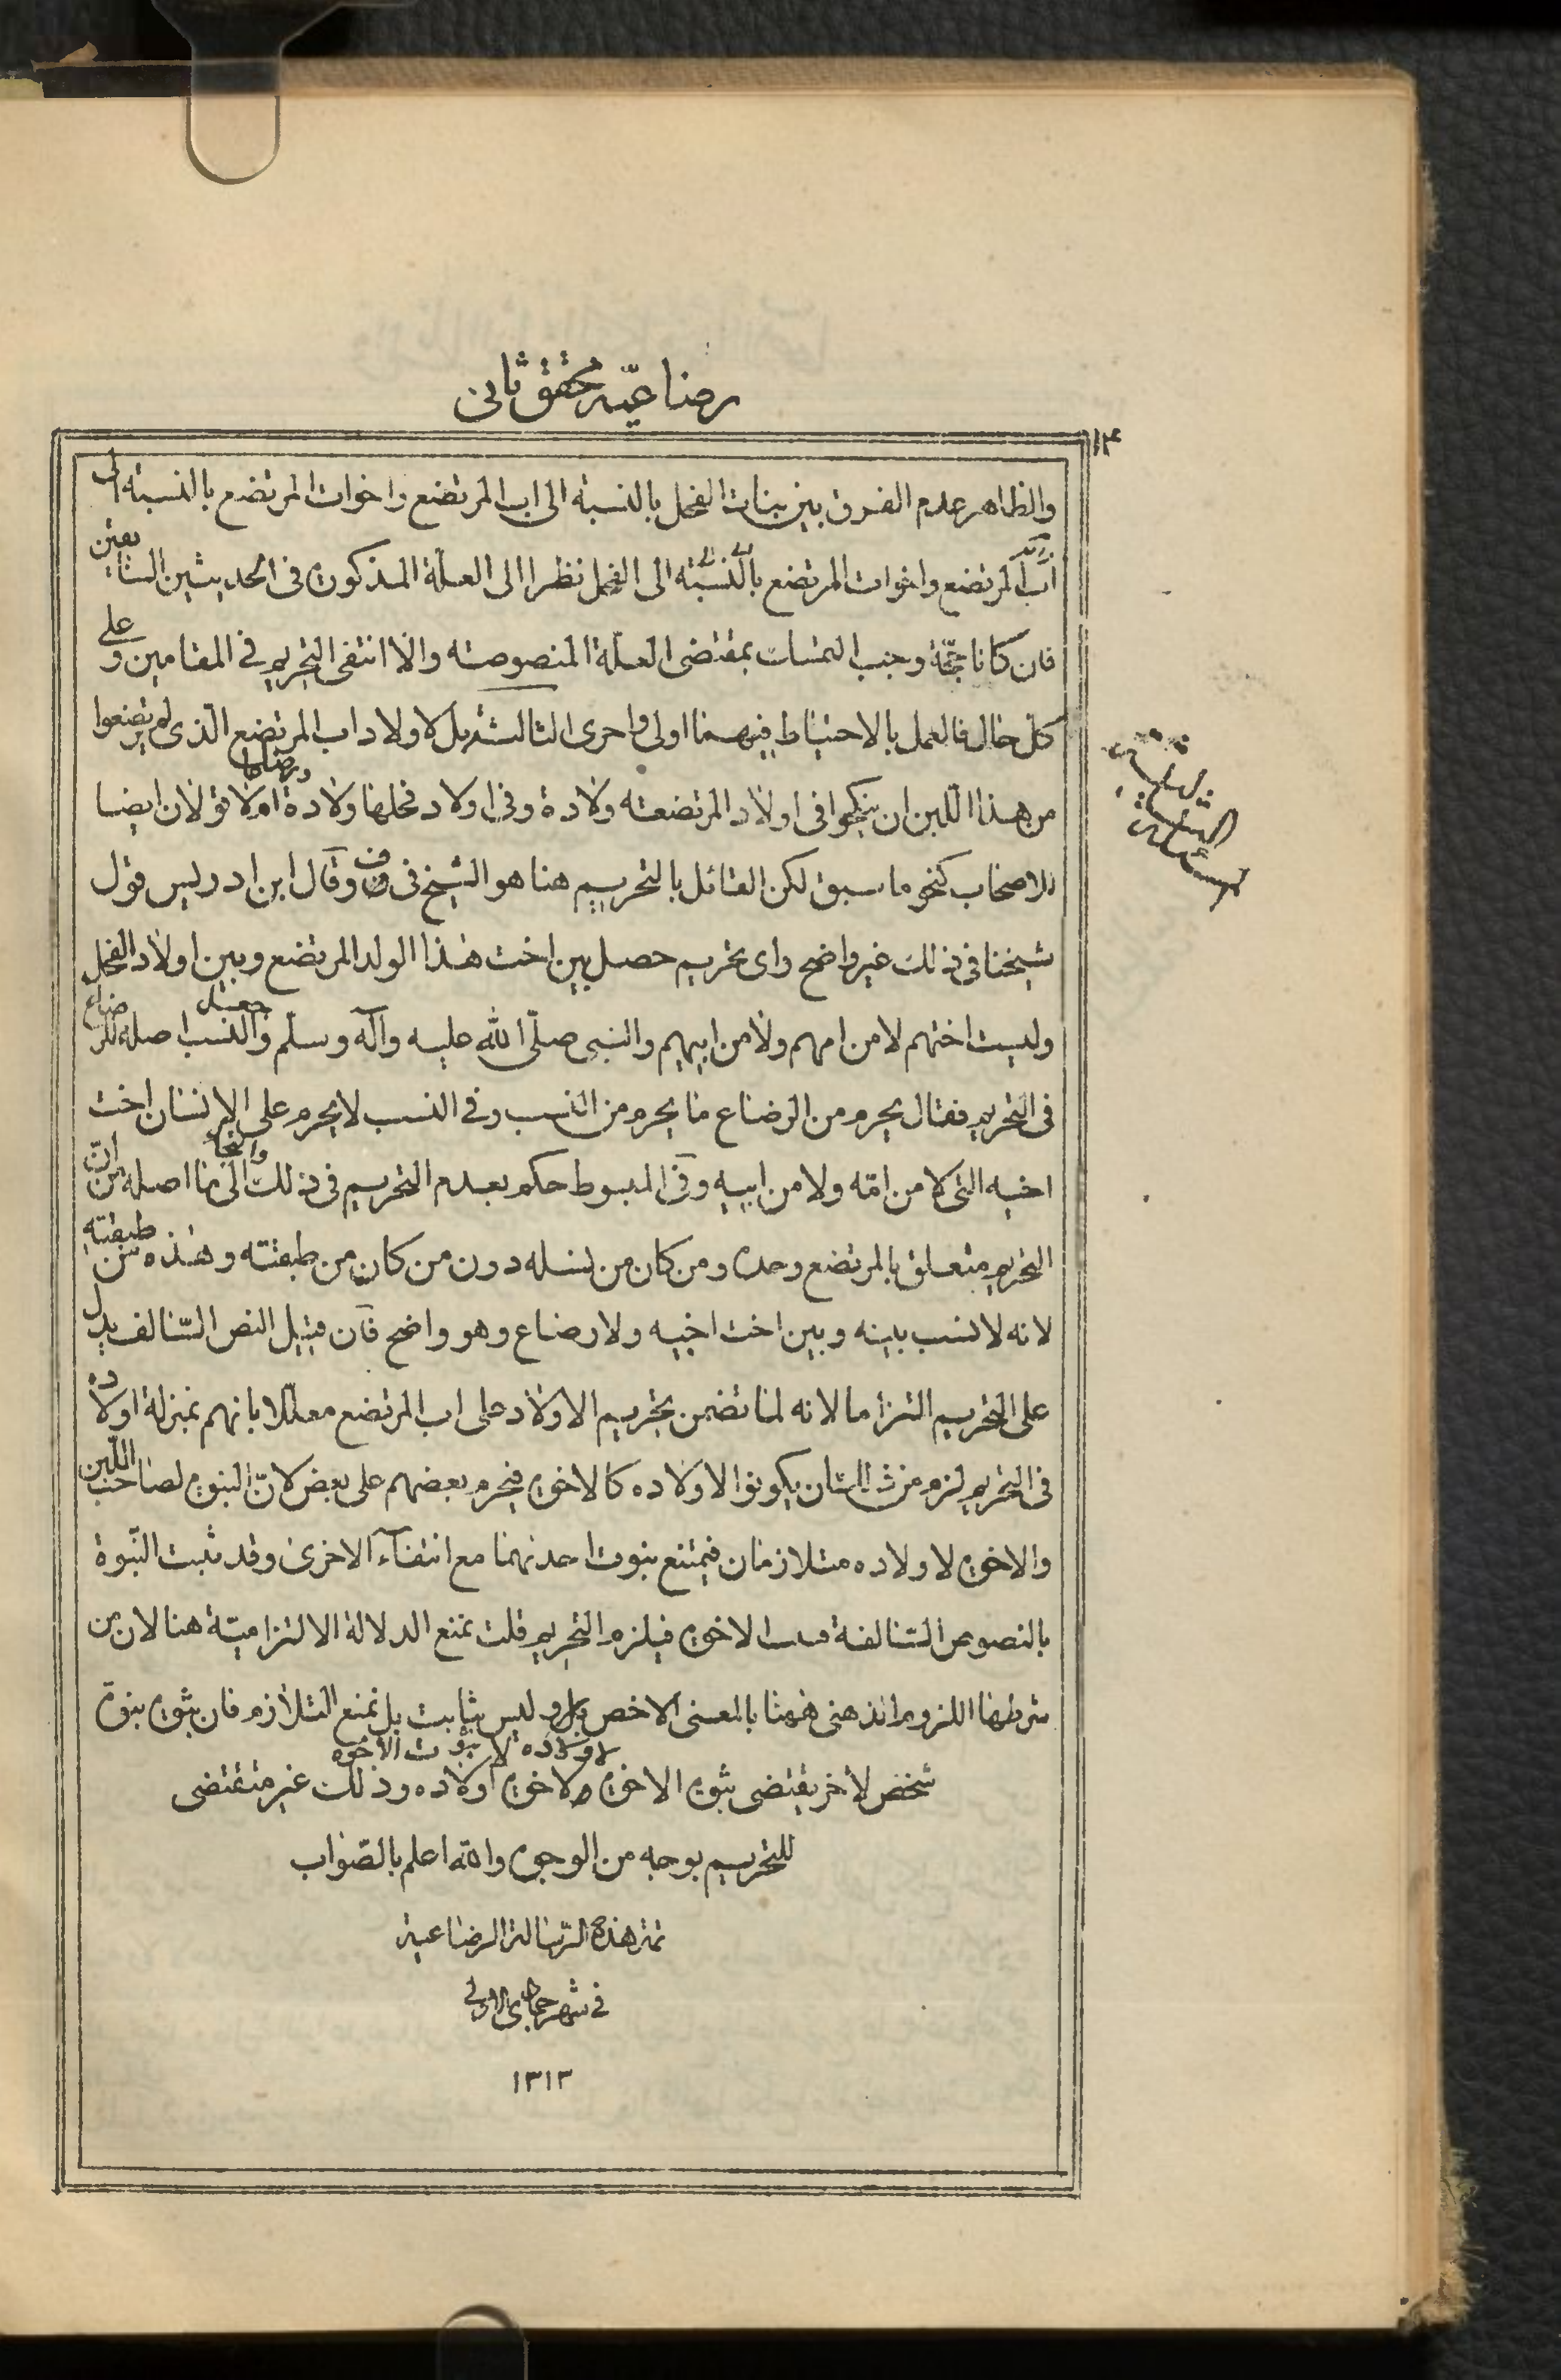 رضاعیّه محقق ثانی
١٤
والظاهر عدم الفرق بين بنات الفحل بالنسبة الى اب المرتضع واخوات المرتضع بالنسبة الى
اب المرتضع واخوات المرتضع بالنسبة الى الفحل نظرا الى العلّة المذكورة فى الحديثين السابقين
فان كانا حجّة وجب التمسك بمقتضى العلّة المنصوصة والا انتفى التحريم في المقامين وعلى
كل حال فالعمل بالاحتياط فيهما اولى واحرى الثالثة هل لاولاد اب المرتضع الذى لم يرتضعوا
من هذا اللبن ان ينكحوا فى اولاد المرتضعة ولادة وفى اولاد فحلها ولادة ورضاعا ام لا قولان ايضا
للاصحاب كنحو ما سبق لكن القائل بالتحريم هنا هو الشيخ فى ف وقال ابن ادريس قول
شيخنا فى ذلك غير واضح واى تحريم حصل بين اخت هذا الولد المرتضع وبين اولاد الفحل
وليست اختهم لا من امهم ولا من ابيهم والنبى صلّى الله عليه وآله وسلّم جعل النسب اصلا للرضاع
فى التحريم فقال يحرم من الرضاع ما يحرم من النسب وفى النسب لا يحرم على الانسان اخت
اخيه التى لا من امّه ولا من ابيه وفى المبسوط حكم بعدم التحريم فى ذلك والتجأ الى ما اصله من ان
التحريم متعلق بالمرتضع وحده ومن كان من نسله دون من كان من طبقته وهذه من طبقته
لانه لا نسب بينه وبين اخت اخيه ولا رضاع وهو واضح فان قيل النص السالف يدل
على التحريم التزاما لانه لما تضمن تحريم الاولاد على اب المرتضع معللا بانهم بمنزلة اولاده
فى التحريم لزم من ذلك ان يكونوا لاولاده كالاخوة فيحرم بعضهم على بعض لانّ البنوة لصاحب اللبن
والاخوة لاولاده متلازمان فيمتنع ثبوت احدهما مع انتفاء الاخرى وقد ثبت البنوة
بالنصوص السالفة الاخوة فيلزم التحريم قلت نمنع الدلالة الالتزامية هنا لان من
شرطها اللزوم الذهنى بالمعنى الاخص وليس بثابت بل نمنع التلازم فان ثبوت بنوة
شخص لاخر يقتضى ثبوت الاخوة لاولاده لا ثبوت الاخوة لاخوة اولاده وذلك غير مقتضى
للتحريم بوجه من الوجوه والله اعلم بالصّواب
تمت هذه الرّسالة الرضاعية
فى شهر جمادى الاولى
١٣١٣